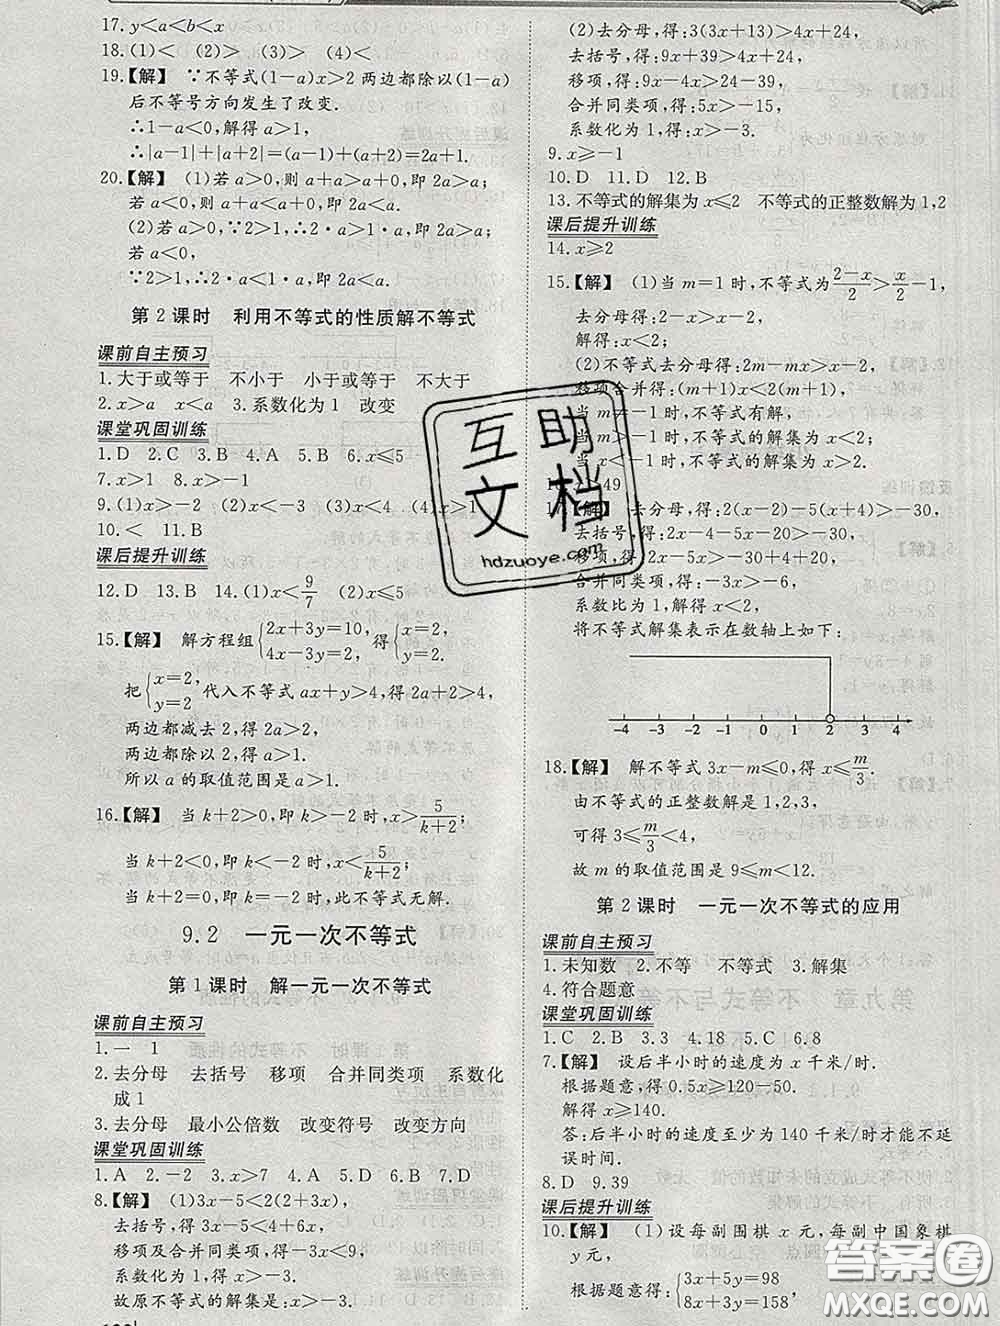 17. y＜a＜b＜x
18. (1)＜　(2)＞　(3)＞　(4)＜
19.【解】 ∵不等式(1－a)x＞2两边都除以(1－a)
后不等号方向发生了改变.
∴1－a＜0,解得a＞1,
∴|a－1|＋|a＋2|＝(a－1)＋(a＋2)＝2a＋1.
20.【解】 (1)若a＞0,则a＋a＞a＋0,即2a＞a;
若a＜0,则a＋a＜a＋0,即2a＜a.
(2)若a＞0,∵2＞1,∴2·a＞1·a,即2a＞a;
若a＜0,
∵2＞1,∴2·a＜1·a,即2a＜a.
第2课时　利用不等式的性质解不等式
课前自主预习
1.大于或等于　不小于　小于或等于　不大于
2. x＞a　x＜a　3.系数化为1　改变
课堂巩固训练
1. D　2. C　3. B　4. A　5. B　6. x≤5
7. x＞1　8. x＞－1
9. (1)x＞－2　(2)x＜－3　(3)x＜4　(4)x＞1
10.＜　11. B
课后提升训练
12. D　13. B　14. (1)x＜9/7　(2)x≤5
15.【解】 解方程组{2x＋3y＝10, 4x－3y＝2, 得{x＝2, y＝2,
把{x＝2, y＝2 代入不等式ax＋y＞4,得2a＋2＞4,
两边都减去2,得2a＞2,
两边都除以2,得a＞1.
所以a的取值范围是a＞1.
16.【解】 当k＋2＞0,即k＞－2时,x＞5/(k＋2);
当k＋2＜0,即k＜－2时,x＜5/(k＋2);
当k＋2＝0,即k＝－2时,此不等式无解.
9.2　一元一次不等式
第1课时　解一元一次不等式
课前自主预习
1.一　1
2.去分母　去括号　移项　合并同类项　系数化
成1
3.去分母　最小公倍数　改变符号　改变方向
课堂巩固训练
1. A　2.－2　3. x＞7　4. A　5. D　6. B　7. D
8.【解】 (1)3x－5＜2(2＋3x),
去括号,得3x－5＜4＋6x,
移项及合并同类项,得－3x＜9,
系数化为1,得x＞－3.
故原不等式的解集是:x＞－3.
(2)去分母,得:3(3x＋13)＞4x＋24,
去括号,得:9x＋39＞4x＋24,
移项,得:9x－4x＞24－39,
合并同类项,得:5x＞－15,
系数化为1,得:x＞－3.
9. x≥－1
10. D　11. D　12. B
13.不等式的解集为x≤2　不等式的正整数解为1,2
课后提升训练
14. x≥2
15.【解】 (1)当m＝1时,不等式为(2－x)/2＞x/2－1,
去分母得:2－x＞x－2,
解得:x＜2;
(2)不等式去分母得:2m－mx＞x－2,
移项合并得:(m＋1)x＜2(m＋1),
当m≠－1时,不等式有解,
当m＞－1时,不等式的解集为x＜2;
当m＜－1时,不等式的解集为x＞2.
49
17.【解】 去分母,得:2(x－2)－5(x＋4)＞－30,
去括号,得:2x－4－5x－20＞－30,
移项,得:2x－5x＞－30＋4＋20,
合并同类项,得:－3x＞－6,
系数比为1,得:x＜2,
将不等式解集表示在数轴上如下:
－4　－3　－2　－1　0　1　2　3　4
18.【解】 解不等式3x－m≤0,得x≤m/3.
由不等式的正整数解是1,2,3,
可得3≤m/3＜4,
故m的取值范围是9≤m＜12.
第2课时　一元一次不等式的应用
课前自主预习
1.未知数　2.不等　不等式　3.解集
4.符合题意
课堂巩固训练
1. C　2. B　3. 4　4. 18　5. C　6. 8
7.【解】 设后半小时的速度为x千米/时.
根据题意,得0.5x≥120－50.
解得x≥140.
答:后半小时的速度至少为140千米/时才能不延
误时间.
8. D　9. 39
课后提升训练
10.【解】 (1)设每副围棋x元,每副中国象棋
y元,
根据题意得:{3x＋5y＝98 8x＋3y＝158,
互助
文档
hdzuoye.com
答案圈
MXQE.COM